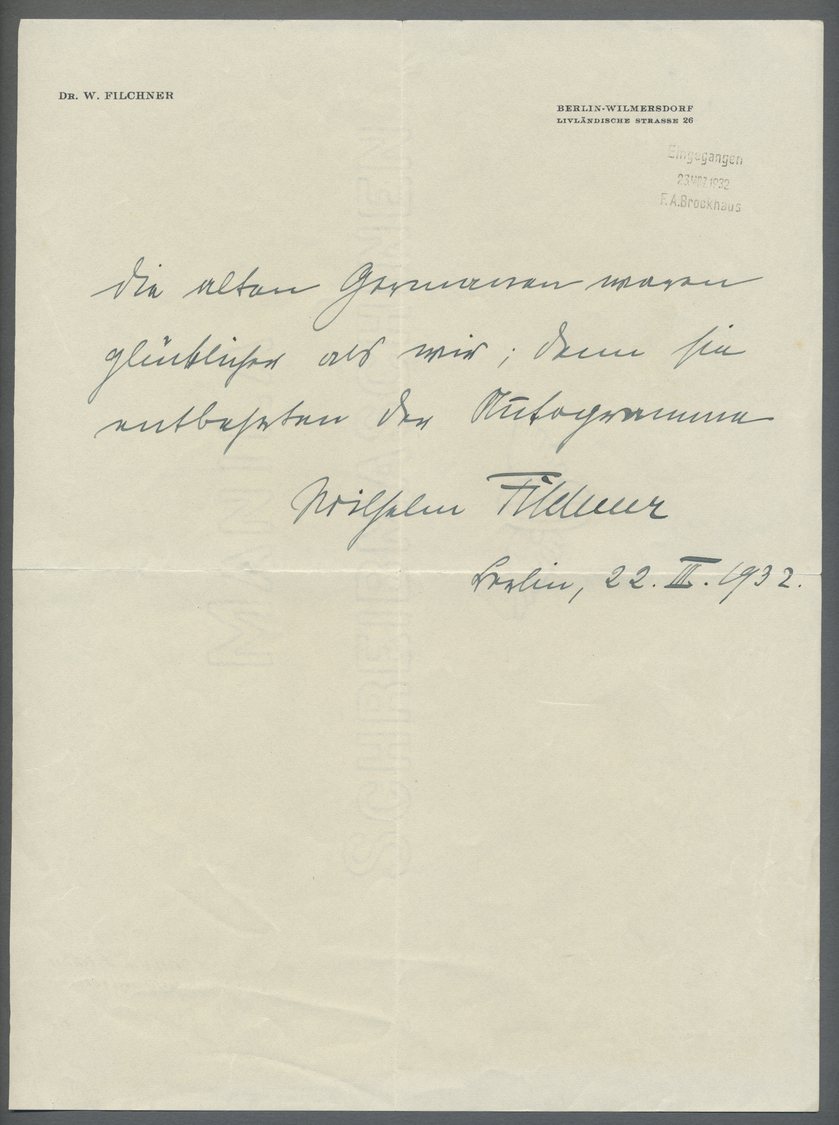 DR. W. FILCHNER
BERLIN-WILMERSDORF
LIVLÄNDISCHE STRASSE 26
Eingegangen
23. MRZ. 1932
F. A. Brockhaus
die alten Germanen waren
glücklicher als wir; denn sie
entbehrten der Autogramme
Wilhelm Filchner
Berlin, 22. III. 1932.
SCHREIBMASCHINEN